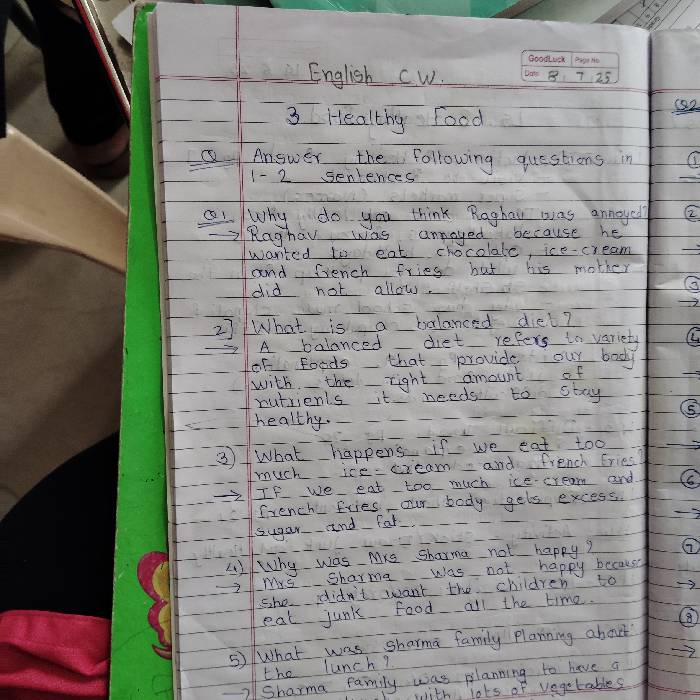 GoodLuck Page No.
Date 8 7 25
English C.W.
3 Healthy Food
Q Answer the following questions in
1-2 sentences
Q1. Why do you think Raghav was annoyed?
→ Raghav was annoyed because he
wanted to eat chocolate, ice-cream
and french fries but his mother
did not allow.
2] What is a balanced diet?
→ A balanced diet refers to variety
of foods that provide our body
with the right amount of
nutrients it needs to stay
healthy.
3) What happens if we eat too
much ice-cream and french fries?
→ If we eat too much ice-cream and
french fries our body gets excess
sugar and fat.
4) Why was Mrs Sharma not happy?
→ Mrs Sharma was not happy because
she didn't want the children to
eat junk food all the time.
5) What was Sharma family planning about
the lunch?
→ Sharma family was planning to have a
with lots of vegetables
Q2
①
②
③
④
→
⑤
→
⑥
→
⑦
→
⑧
→